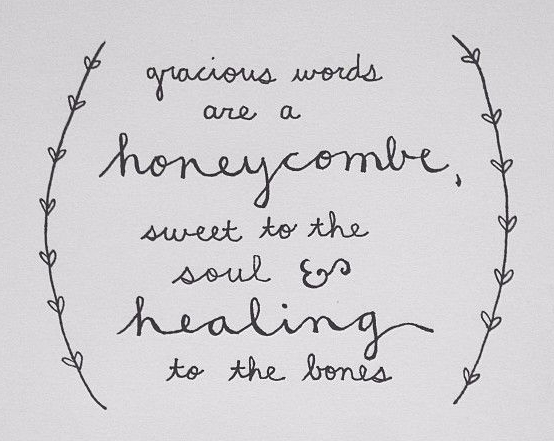 gracious words
are a
honeycombe,
sweet to the
soul &
healing
to the bones